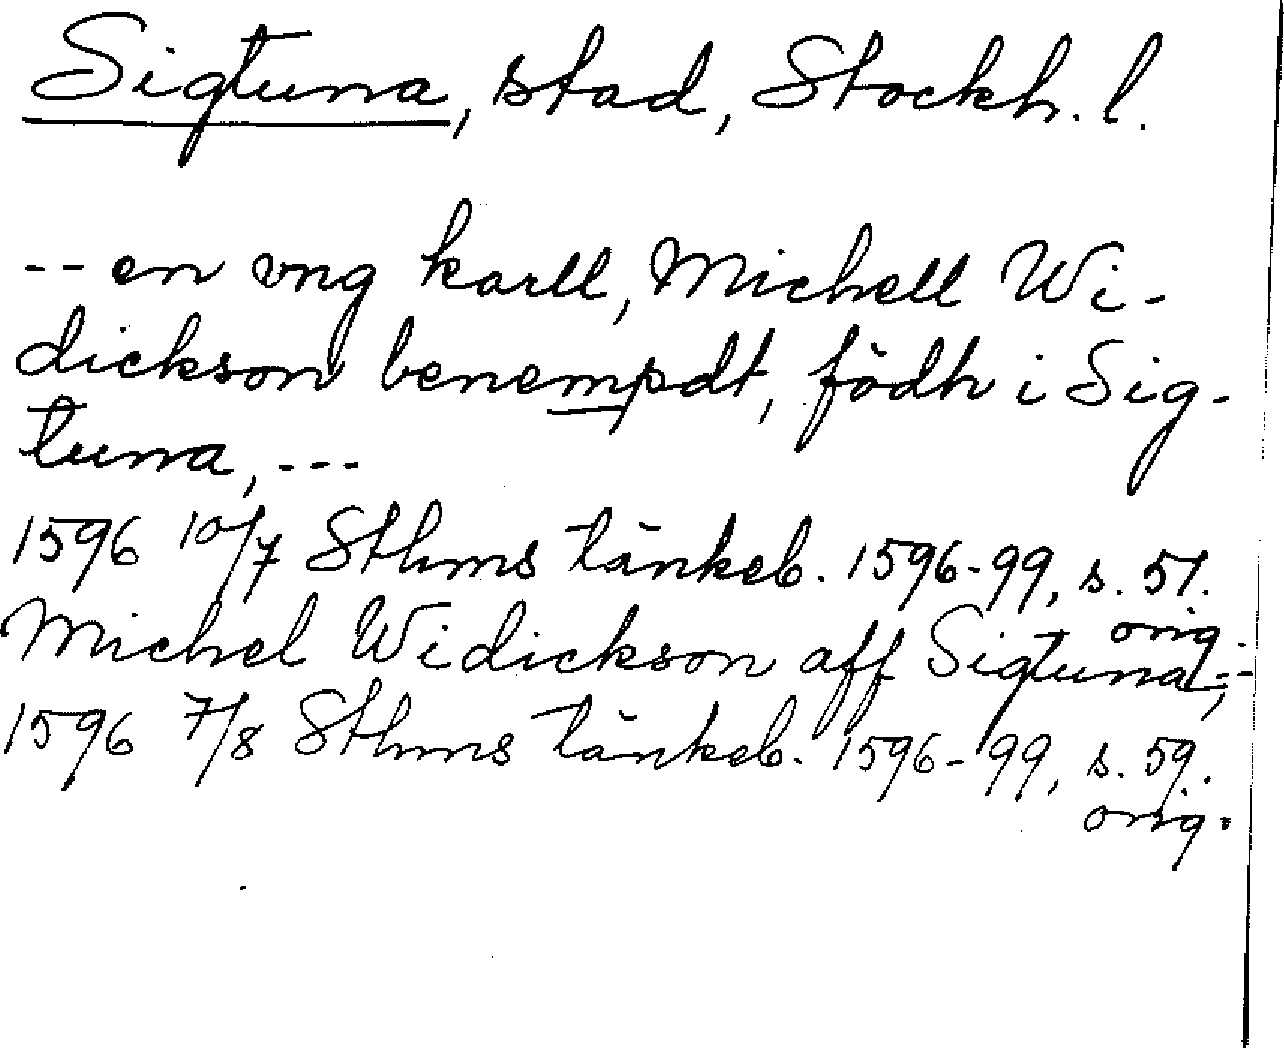 Sigtuna, stad, Stockh. l.
-- en vng karll, Michell Wi-
dickson benempdt, födh i Sig-
tuna, ---
1596 10/7 Sthms tänkeb. 1596-99, s. 51.
orig.
Michel Widickson aff Sigtuna, --
1596 7/8 Sthms tänkeb. 1596-99, s. 59.
orig.